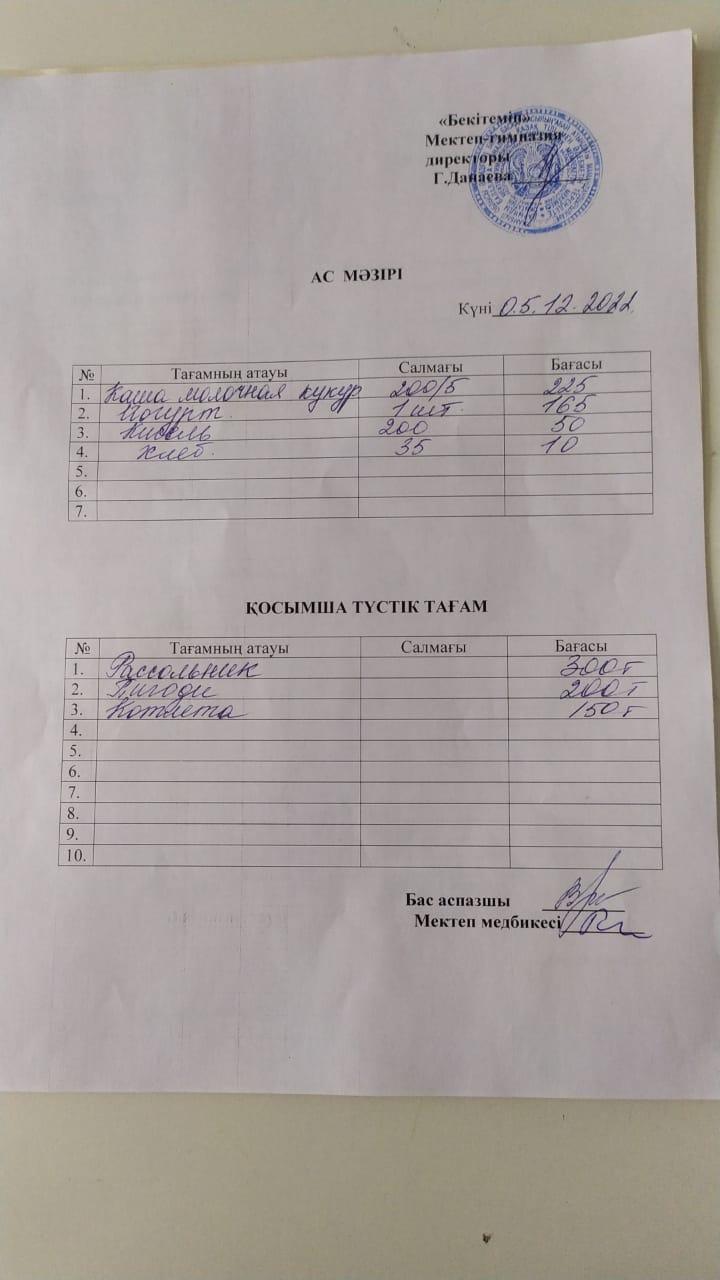 «Бекітемін»
Мектеп-гимназия
директоры
Г.Данаева
АС МӘЗІРІ
Күні 05.12.2022
№ Тағамның атауы Салмағы Бағасы
1. Каша молочная кукур 200/5 225
2. Йогурт. 1 шт. 165
3. Кисель 200 50
4. Хлеб. 35 10
5.
6.
7.
ҚОСЫМША ТҮСТІК ТАҒАМ
№ Тағамның атауы Салмағы Бағасы
1. Рассольник 300т
2. Пигоди 200т
3. Котлета 150т
4.
5.
6.
7.
8.
9.
10.
Бас аспазшы
Мектеп медбикесі